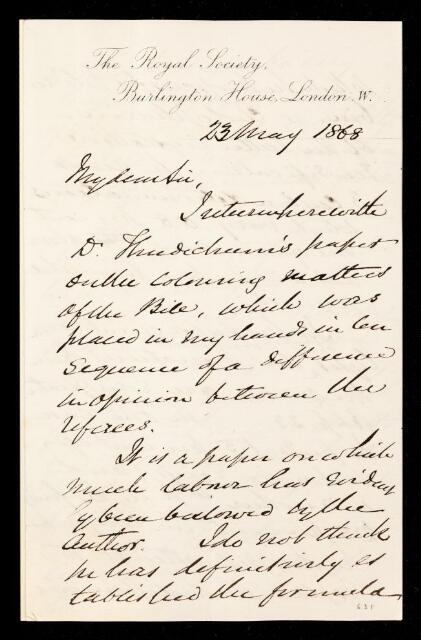 The Royal Society,
Burlington House, London. W.
23 May 1868
My dear Sir,
I return herewith
Dr. Thudichum's paper
on the colouring matters
of the Bile, which was
placed in my hands in con
sequence of a difference
in opinion between the
referees.
It is a paper on which
much labour has eviden
tly been bestowed by the
Author. I do not think
he has definitively es
tablished the formula
631